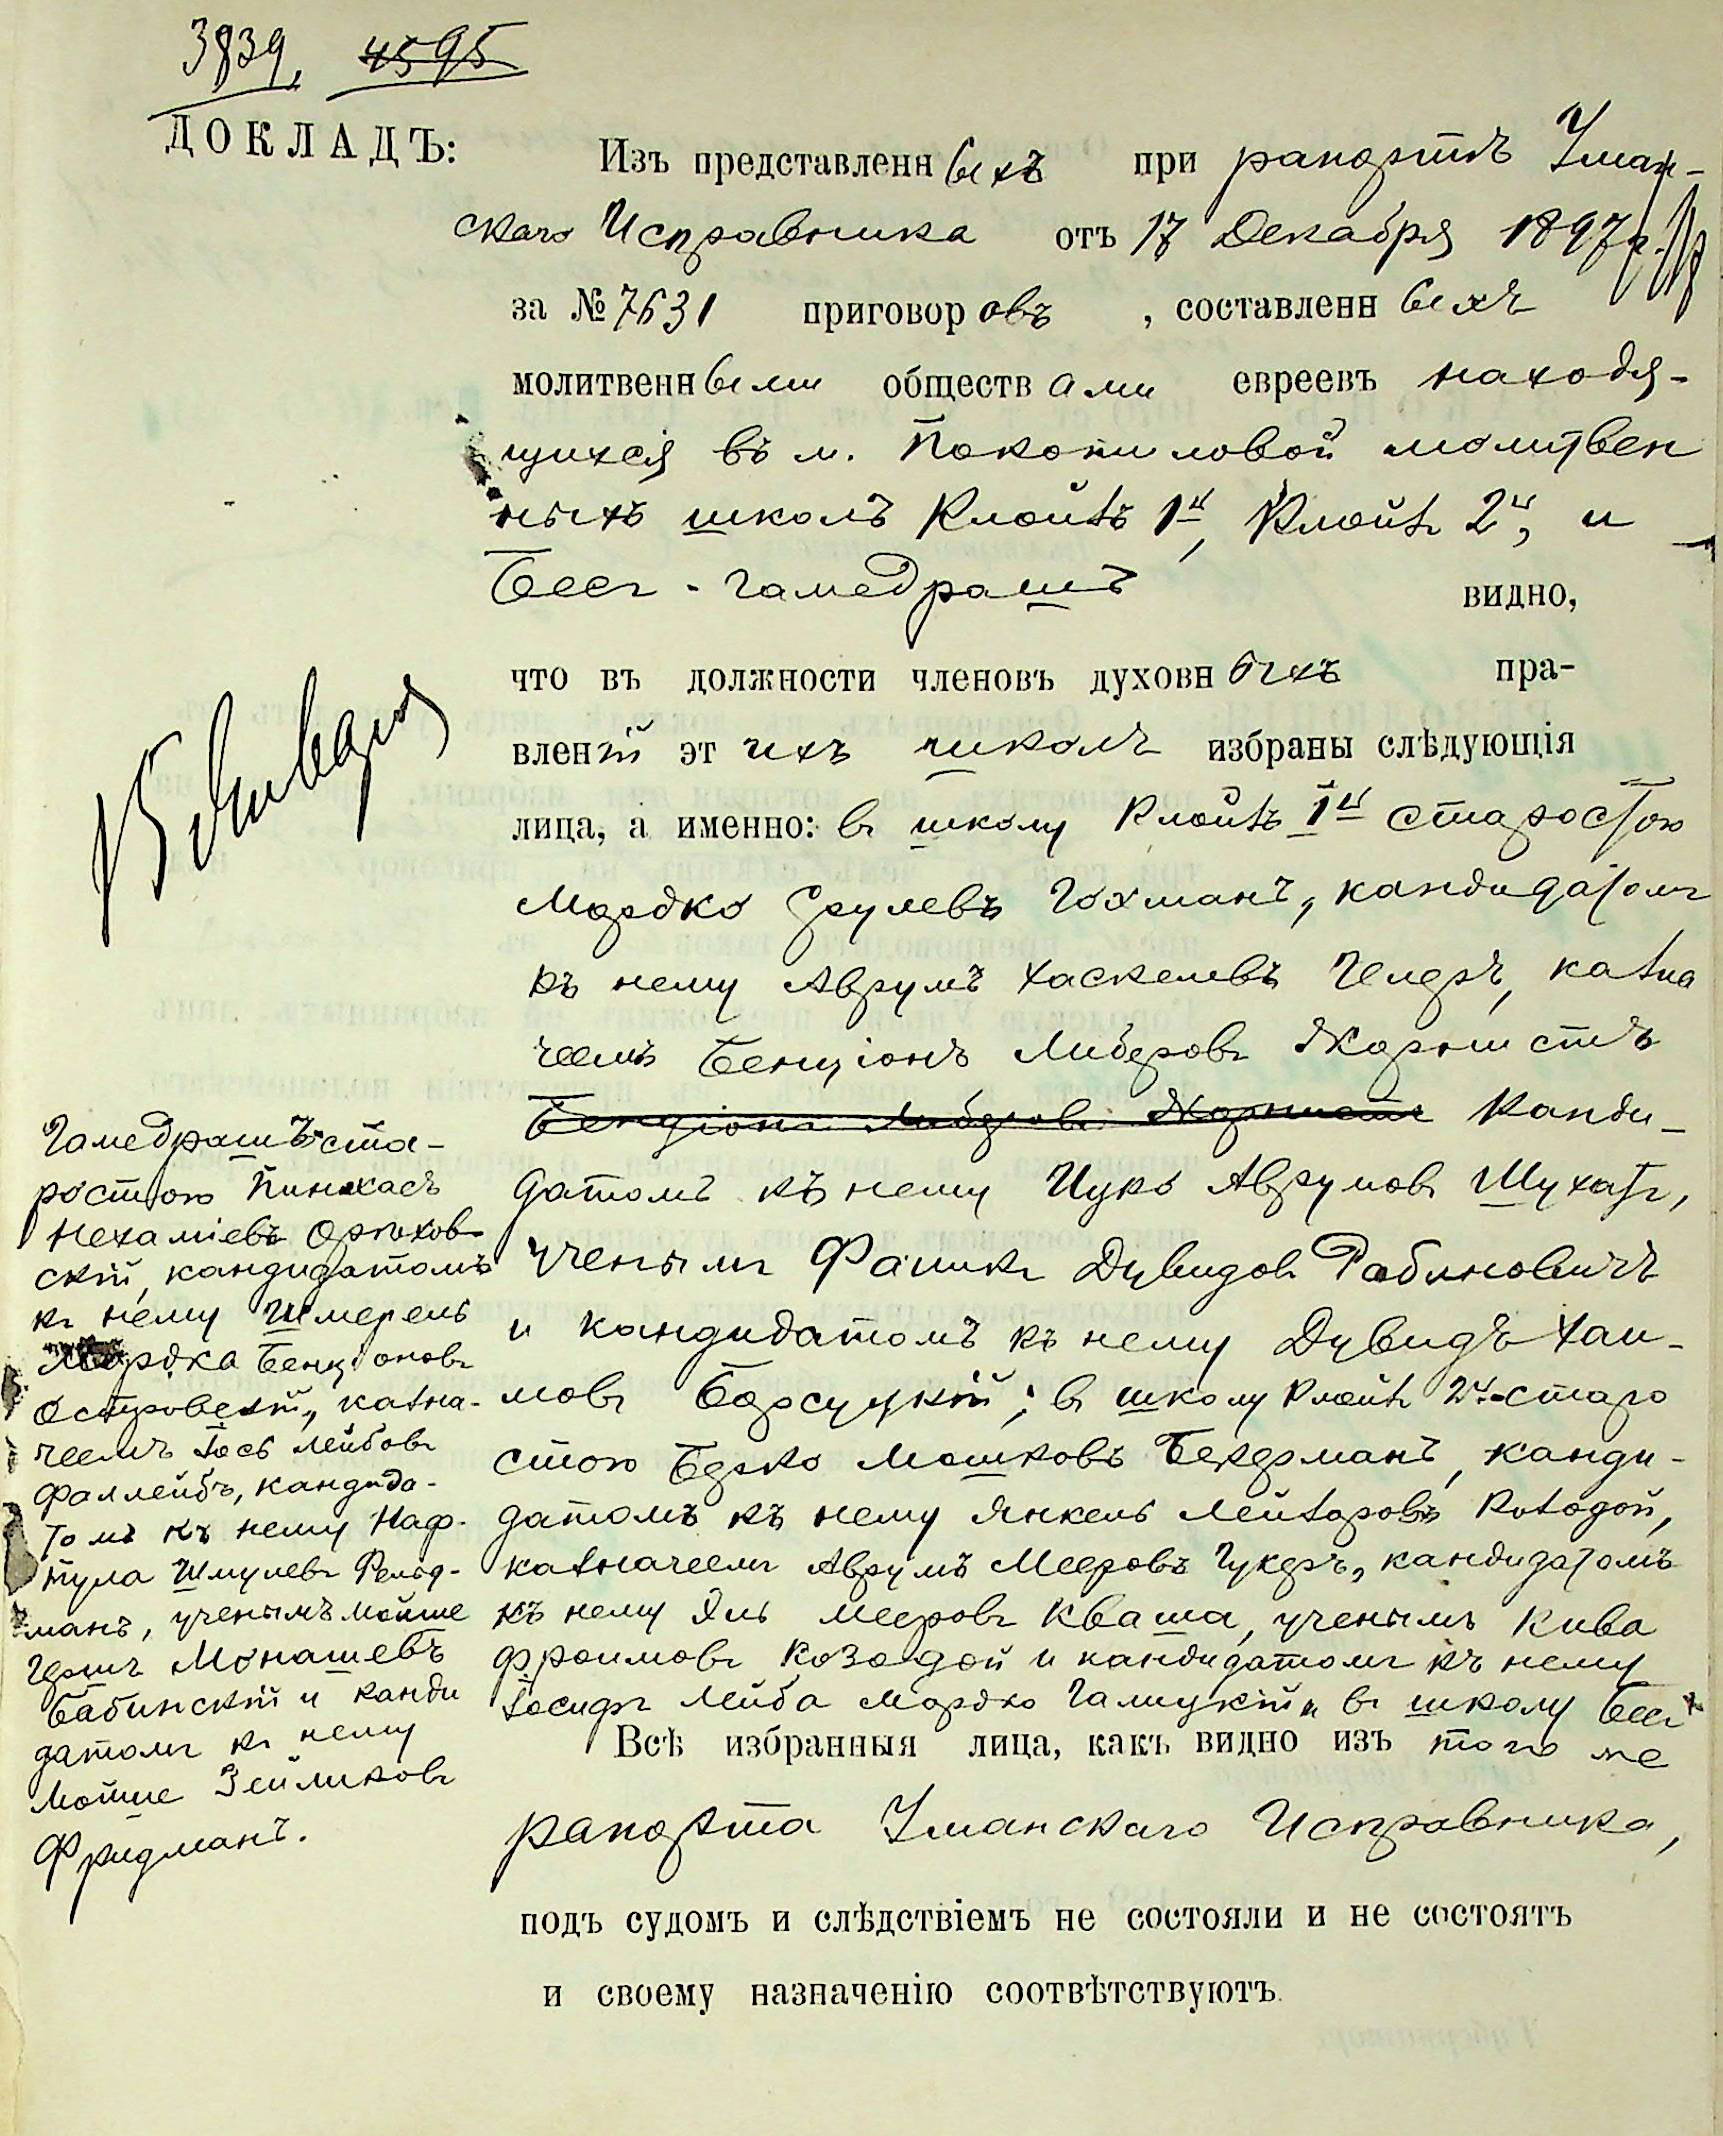 3839, 4595
ДОКЛАДЪ:
Изъ представленныхъ при рапортѣ Уман-
скаго Исправника отъ 17 Декабря 1897 г.
за № 7631 приговоровъ, составленныхъ
молитвенными обществами евреевъ находя-
щихся въ м. Покотиловой молитвен
ныхъ школъ Клойзъ 1й, Клойзъ 2й, и
Бесъ-гамедрашъ видно,
что въ должности членовъ духовныхъ пра-
вленій этихъ школъ избраны слѣдующія
лица, а именно: въ школу Клойзъ 1й старостою
Мордко Срулевъ Гохманъ, кандидатомъ
къ нему Аврумъ Хаскелевъ Гелеръ, казна
чеемъ Бенціонъ Либеровъ Жорнистъ
Бенціонъ Либеровъ Жорнистъ Канди-
датомъ къ нему Ицко Аврумовъ Шухатъ,
ученымъ Фаликъ Дувидовъ Рабиновичъ
и кандидатомъ къ нему Дувидъ Хаи-
мовъ Борсуцкій; въ школу Клойзъ 2й-старо
стою Берко Мошковъ Бекерманъ, канди-
датомъ къ нему Янкель Лейзоровъ Козодой,
казначеемъ Аврумъ Мееровъ Цукеръ, кандидатомъ
къ нему Эль Мееровъ Кваша, ученымъ Кива
Фроимовъ Козодой и кандидатомъ къ нему
Іосифъ Лейба Мордко Галицкій и въ школу Бесъ
Гамедрашъ ста-
ростою Пинхасъ
Нехаміевъ Орѣхов-
скій, кандидатомъ
къ нему Шмерель
Мордка Бенціоновъ
Островскій, казна-
чеемъ Іось Лейбовъ
Фаллейбъ, кандида-
томъ къ нему Наф-
тула Шмулевъ Фельд-
манъ, ученымъ Мойше
Гершъ Монашевъ
Бабинскій и канди
датомъ къ нему
Мойше Зейликовъ
Фридманъ.
Всѣ избранныя лица, какъ видно изъ того же
рапорта Уманскаго Исправника,
подъ судомъ и слѣдствіемъ не состояли и не состоятъ
и своему назначенію соотвѣтствуютъ.